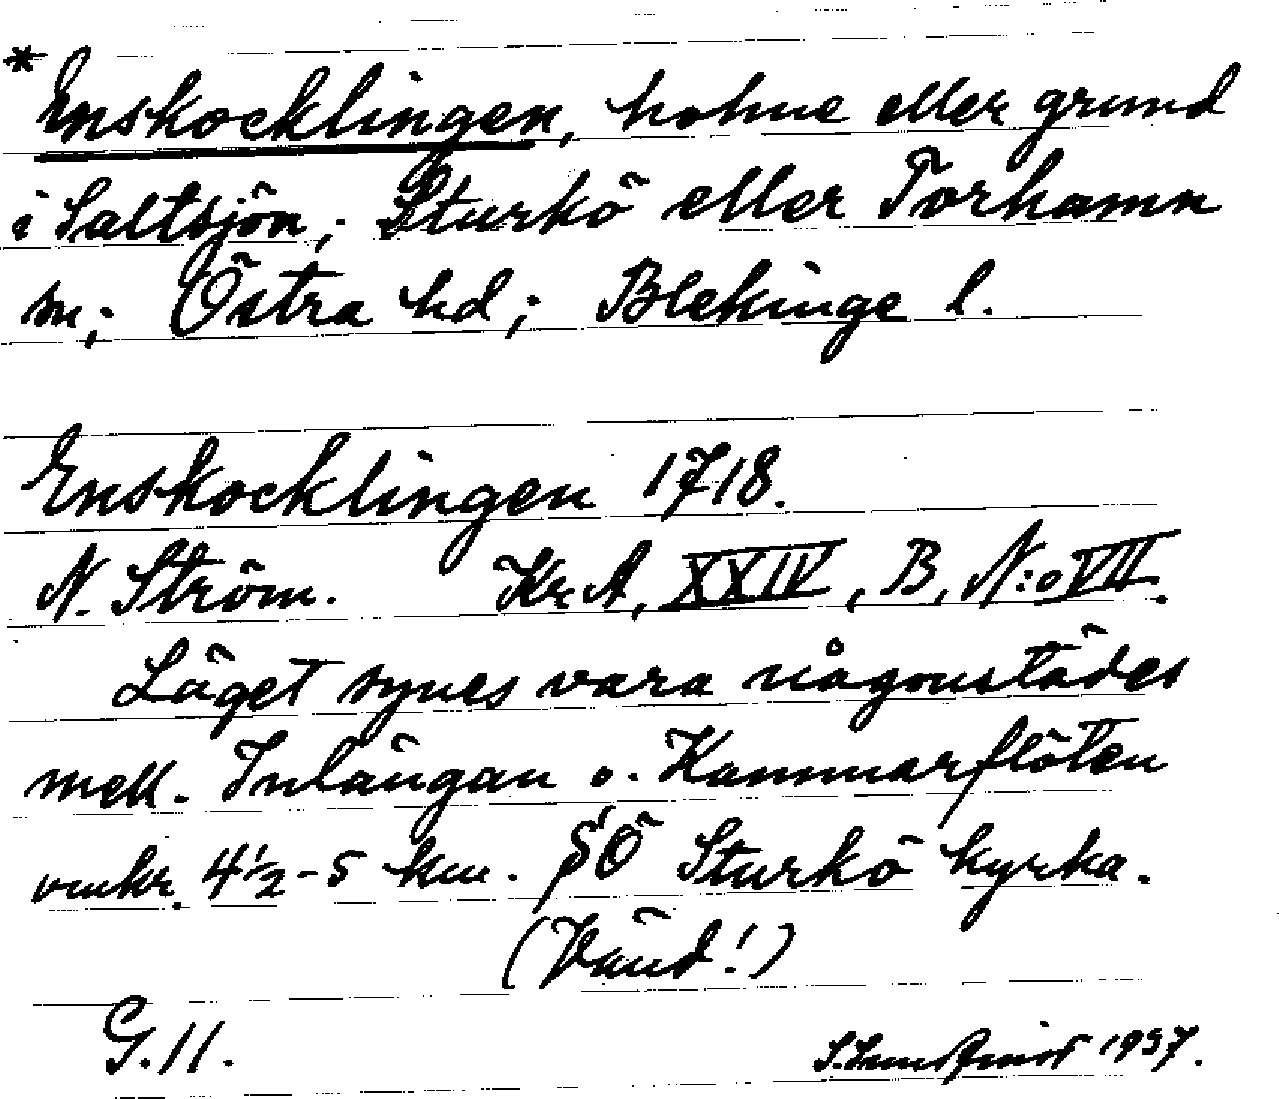 *Enskocklingen, holme eller grund
i Saltsjön; Sturkö eller Torhamn
sn; Östra hd; Blekinge l.
Enskocklingen 1718.
N. Ström. Kr.A, XXIV, B, N:o VII.
Läget synes vara någonstädes
mell. Inlängan o. Kammarflöten
omkr. 4½-5 km. SÖ Sturkö kyrka.
(Vänd!)
G.11.
1937.